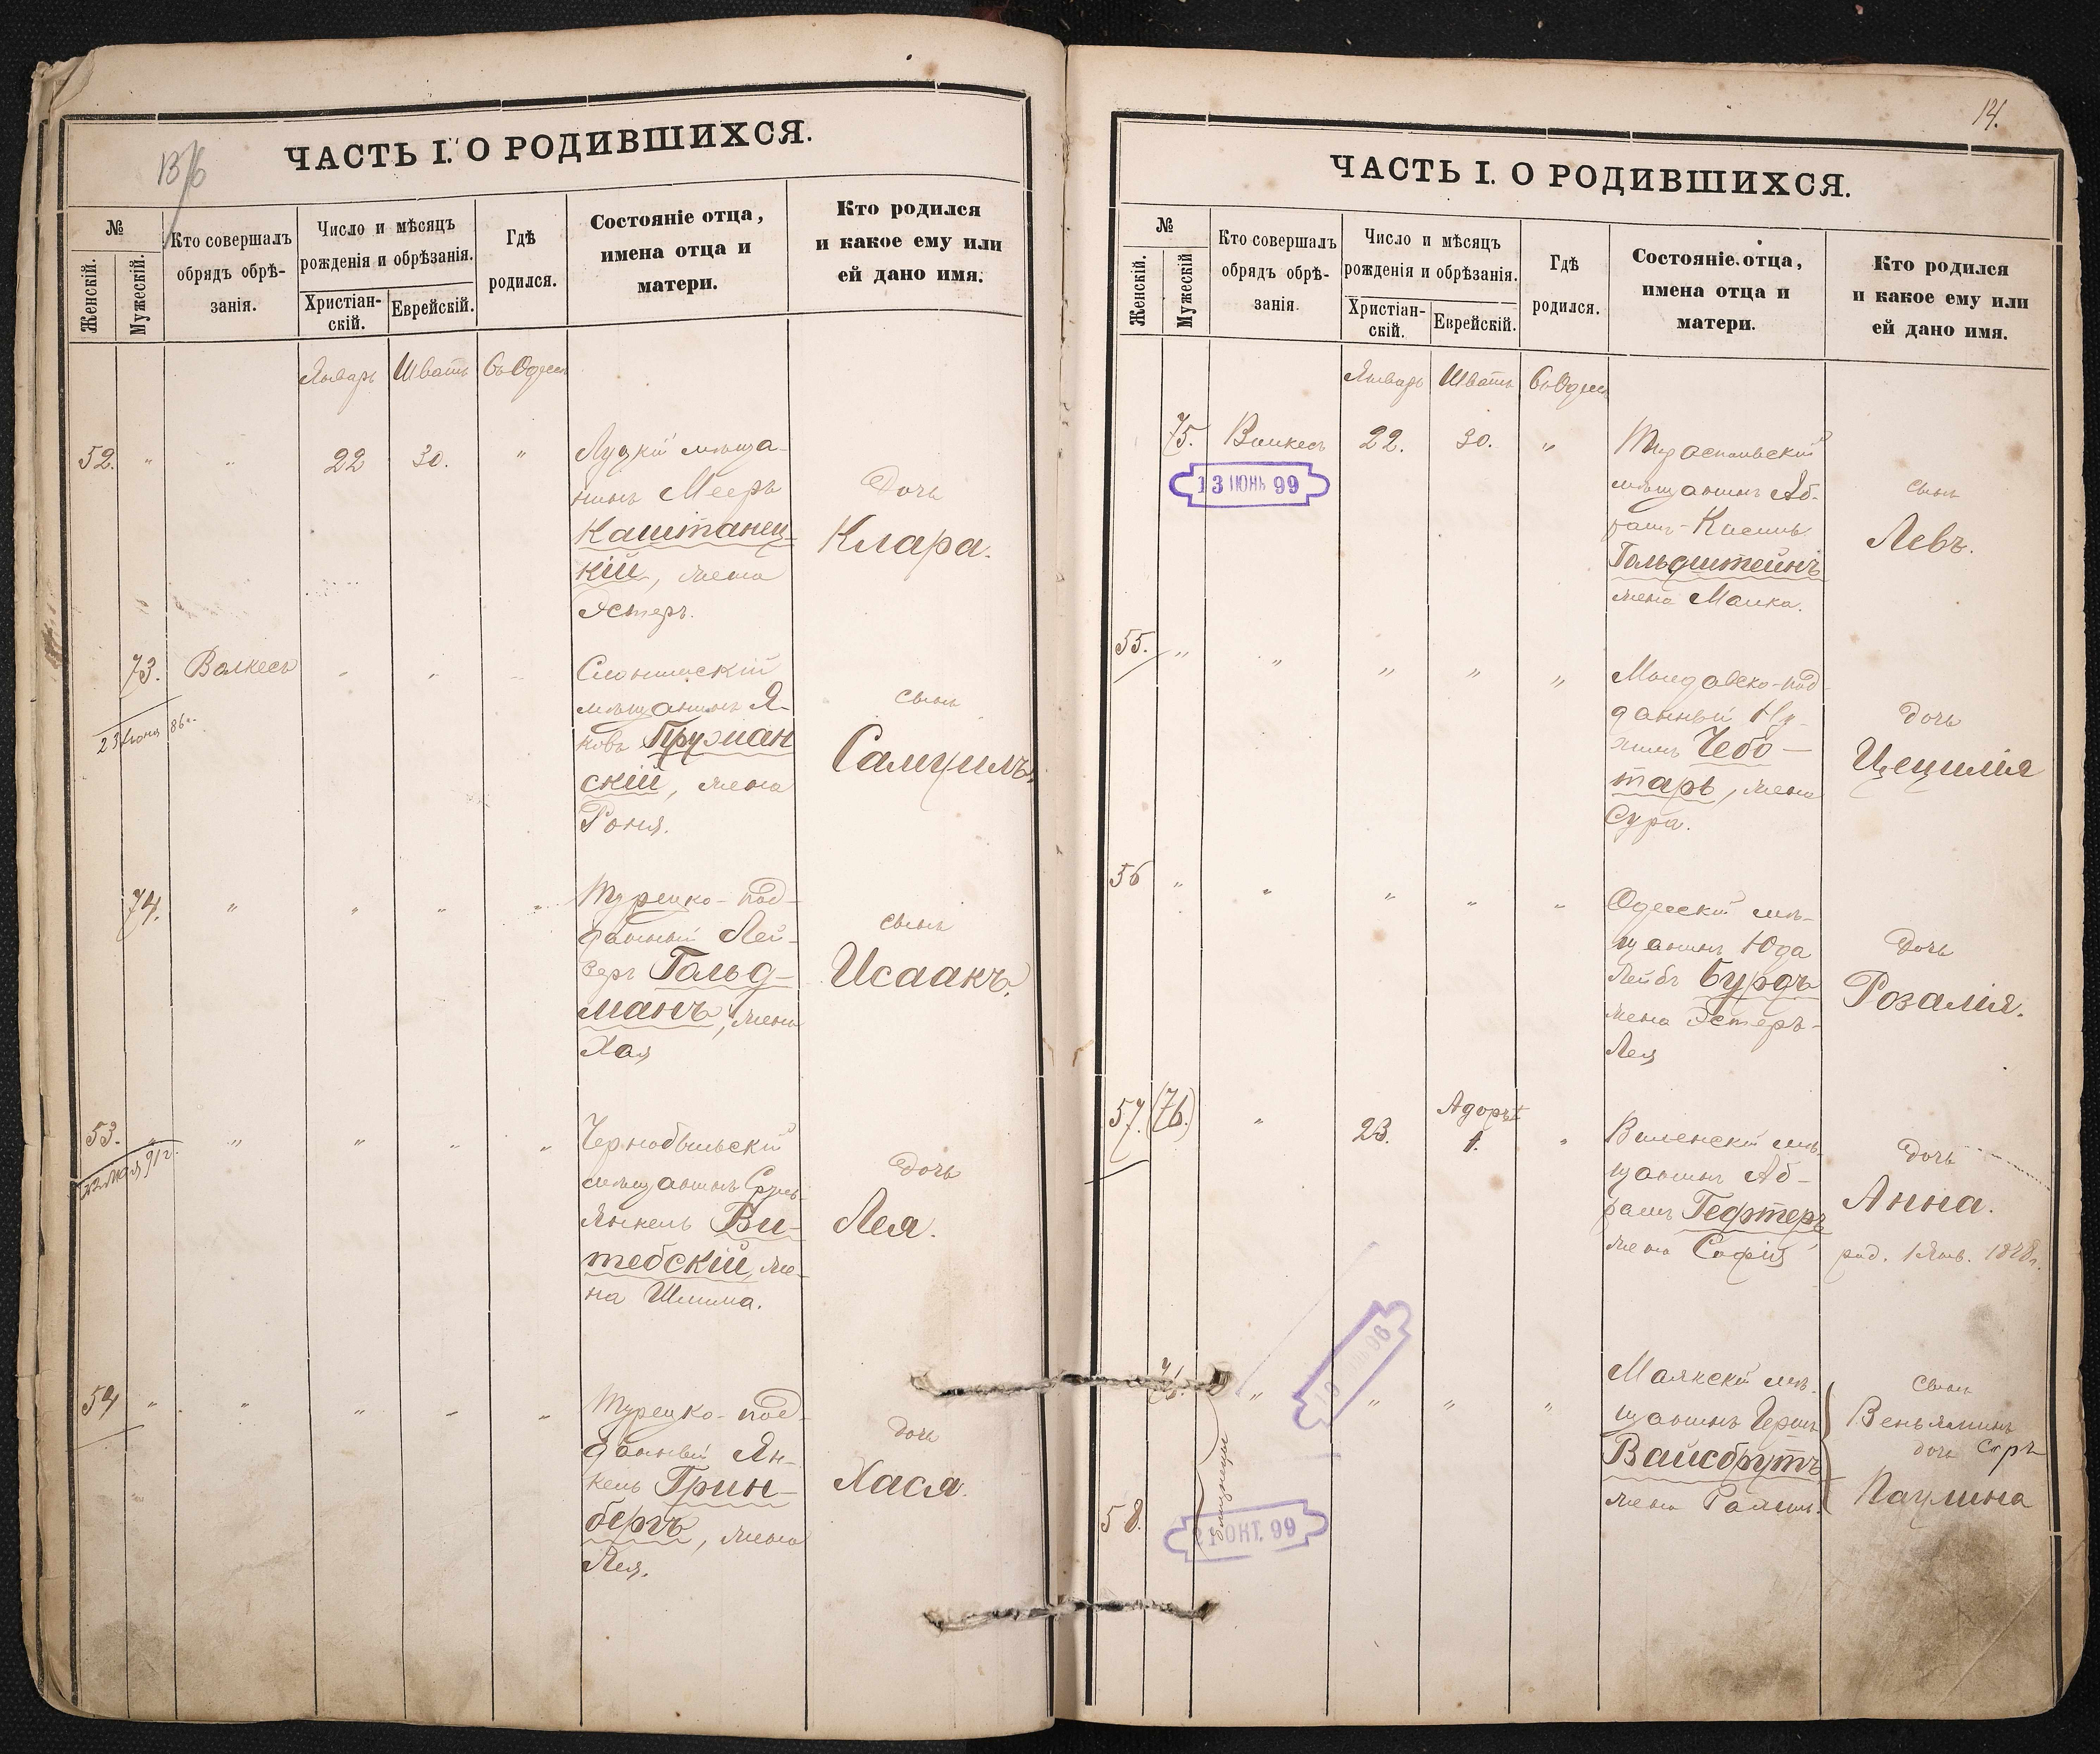 13/6
ЧАСТЬ I. О РОДИВШИХСЯ.
№
Женскій.
Мужескій.
Кто совершалъ
обрядъ обрѣ-
занія.
Число и мѣсяцъ
рожденія и обрѣзанія.
Христіан-
скій.
Еврейскій.
Гдѣ
родился.
Состояніе отца,
имена отца и
матери.
Кто родился
и какое ему или
ей дано имя.
Январь Шватъ Въ Одессѣ
52. " " 22 30. "
Луцкій мѣща-
нинъ Мееръ
Каштанец-
кій, жена
Эстеръ.
Дочь
Клара.
73. Валкесъ
23 Іюня 86 г.
Слонимскій
мѣщанинъ Я-
ковъ Пружан
скій, жена
Роня.
сынъ
Самуилъ.
74. " " " "
Турецко-под-
данный Лей-
зеръ Гольд-
манъ, жена
Хая
сынъ
Исаакъ.
53. " " " " "
22 Мая 91 г.
Чернобыльскій
мѣщанинъ Сруль-
Янкель Ви-
тебскій, же-
на Шлима.
дочь
Лея.
54 " " " " "
Турецко-под-
данный Ян-
кель Грин-
бергъ, жена
Лея.
дочь
Хася.
14.
ЧАСТЬ I. О РОДИВШИХСЯ.
№
Женскій.
Мужескій
Кто совершалъ
обрядъ обрѣ-
занія.
Число и мѣсяцъ
рожденія и обрѣзанія.
Христіан-
скій.
Еврейскій.
Гдѣ
родился.
Состояніе отца,
имена отца и
матери.
Кто родился
и какое ему или
ей дано имя.
Январь Шватъ Въ Одессѣ
75. Валкесъ 22. 30. "
13 ІЮНЬ 99
Тираспольскій
мѣщанинъ Аб-
рамъ-
Гольдштейнъ
жена Малка.
сынъ
Левъ.
55. " " " " "
Молдавско-под
данный Ну-
химъ Чебо-
тарь, жена
Сура.
дочь
Цецилія
56 " " " " "
Одесскій мѣ-
щанинъ Юда
Лейбъ Бурдъ
жена Эстеръ-
Лея
дочь
Розалія.
57. (76.) " 23. Адоръ I 1. "
Виленскій мѣ-
щанинъ Аб-
рамъ Гефтеръ
жена Софія
дочь
Анна.
род. 1 Янв. 1878 г.
76. " " " "
96
Маякскій мѣ-
щанинъ Гершъ
Вайсбрутъ
жена
сынъ
Веньяминъ
дочь
Паулина
близнецы
58.
21 ОКТ. 99